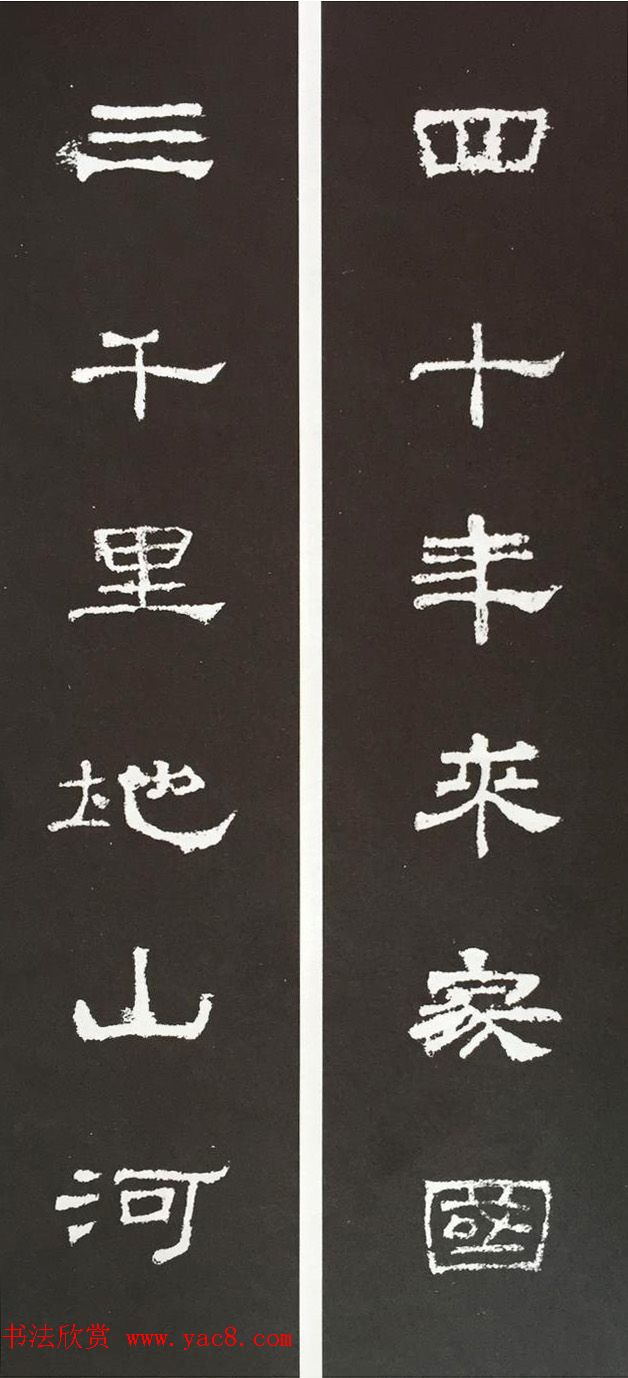 四十年來家國
三千里地山河
书法欣赏 www.yac8.com